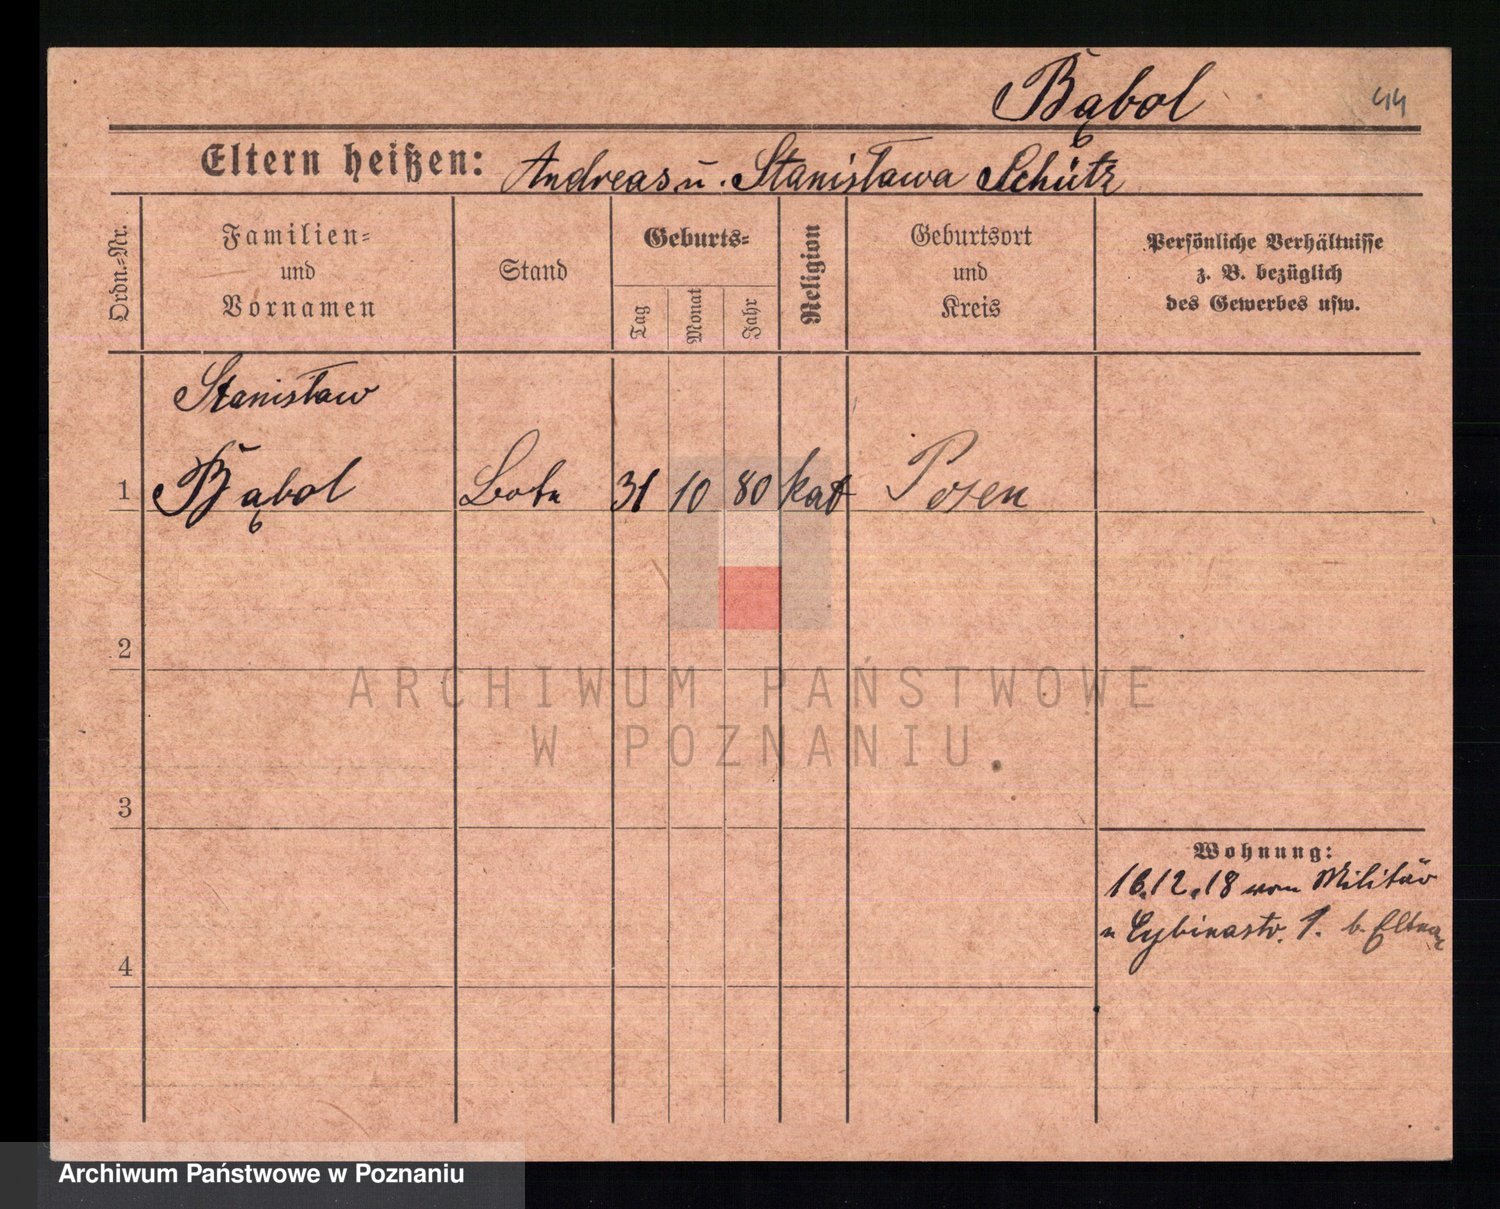 Bąbol
44
Eltern heißen: Andreas u. Stanisława Schütz
Ordn.-Nr.
Familien-
und
Vornamen
Stand
Geburts-
Tag
Monat
Jahr
Religion
Geburtsort
und
Kreis
Persönliche Verhältnisse
z. B. bezüglich
des Gewerbes usw.
Stanisław
1 Bąbol Bote 31 10 80 kat Posen
2
3
4
Wohnung:
16.12.18 vom Militär
n Cybinastr. 1. b. Eltern
ARCHIWUM PAŃSTWOWE
W POZNANIU
Archiwum Państwowe w Poznaniu